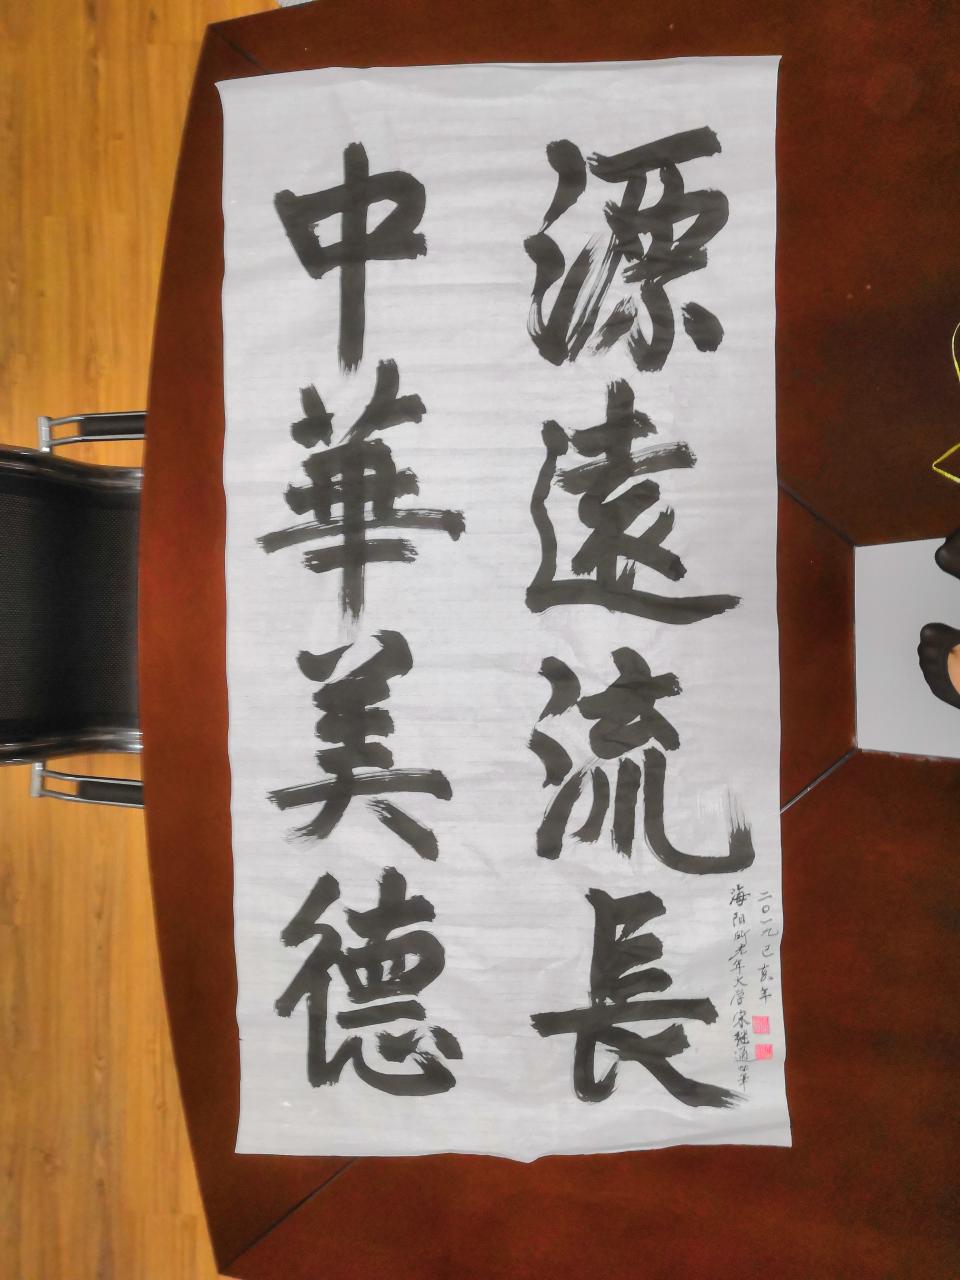 中華美德
源遠流長
海阳所老年大学宋继通筆
二〇一九己亥年